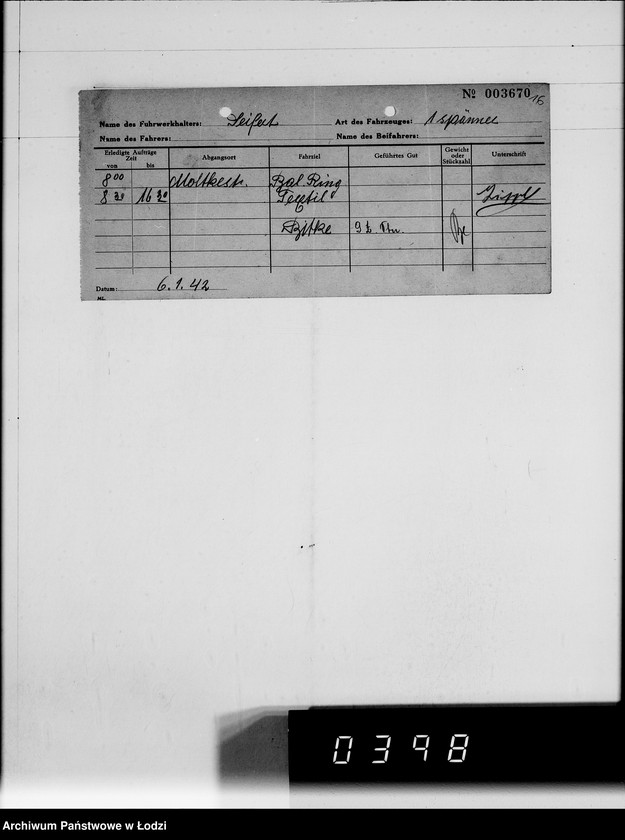 № 003670
16
Name des Fuhrwerkhalters: Seifert Art des Fahrzeuges: 1 spänner
Name des Fahrers: Name des Beifahrers:
Erledigte Aufträge Zeit von bis Abgangsort Fahrziel Geführtes Gut Gewicht oder Stückzahl Unterschrift
8 00 Moltkestr. Bal. Ring
8 20 16 30 Textil
9
Datum: 6.1.42
ML.
0398
Archiwum Państwowe w Łodzi